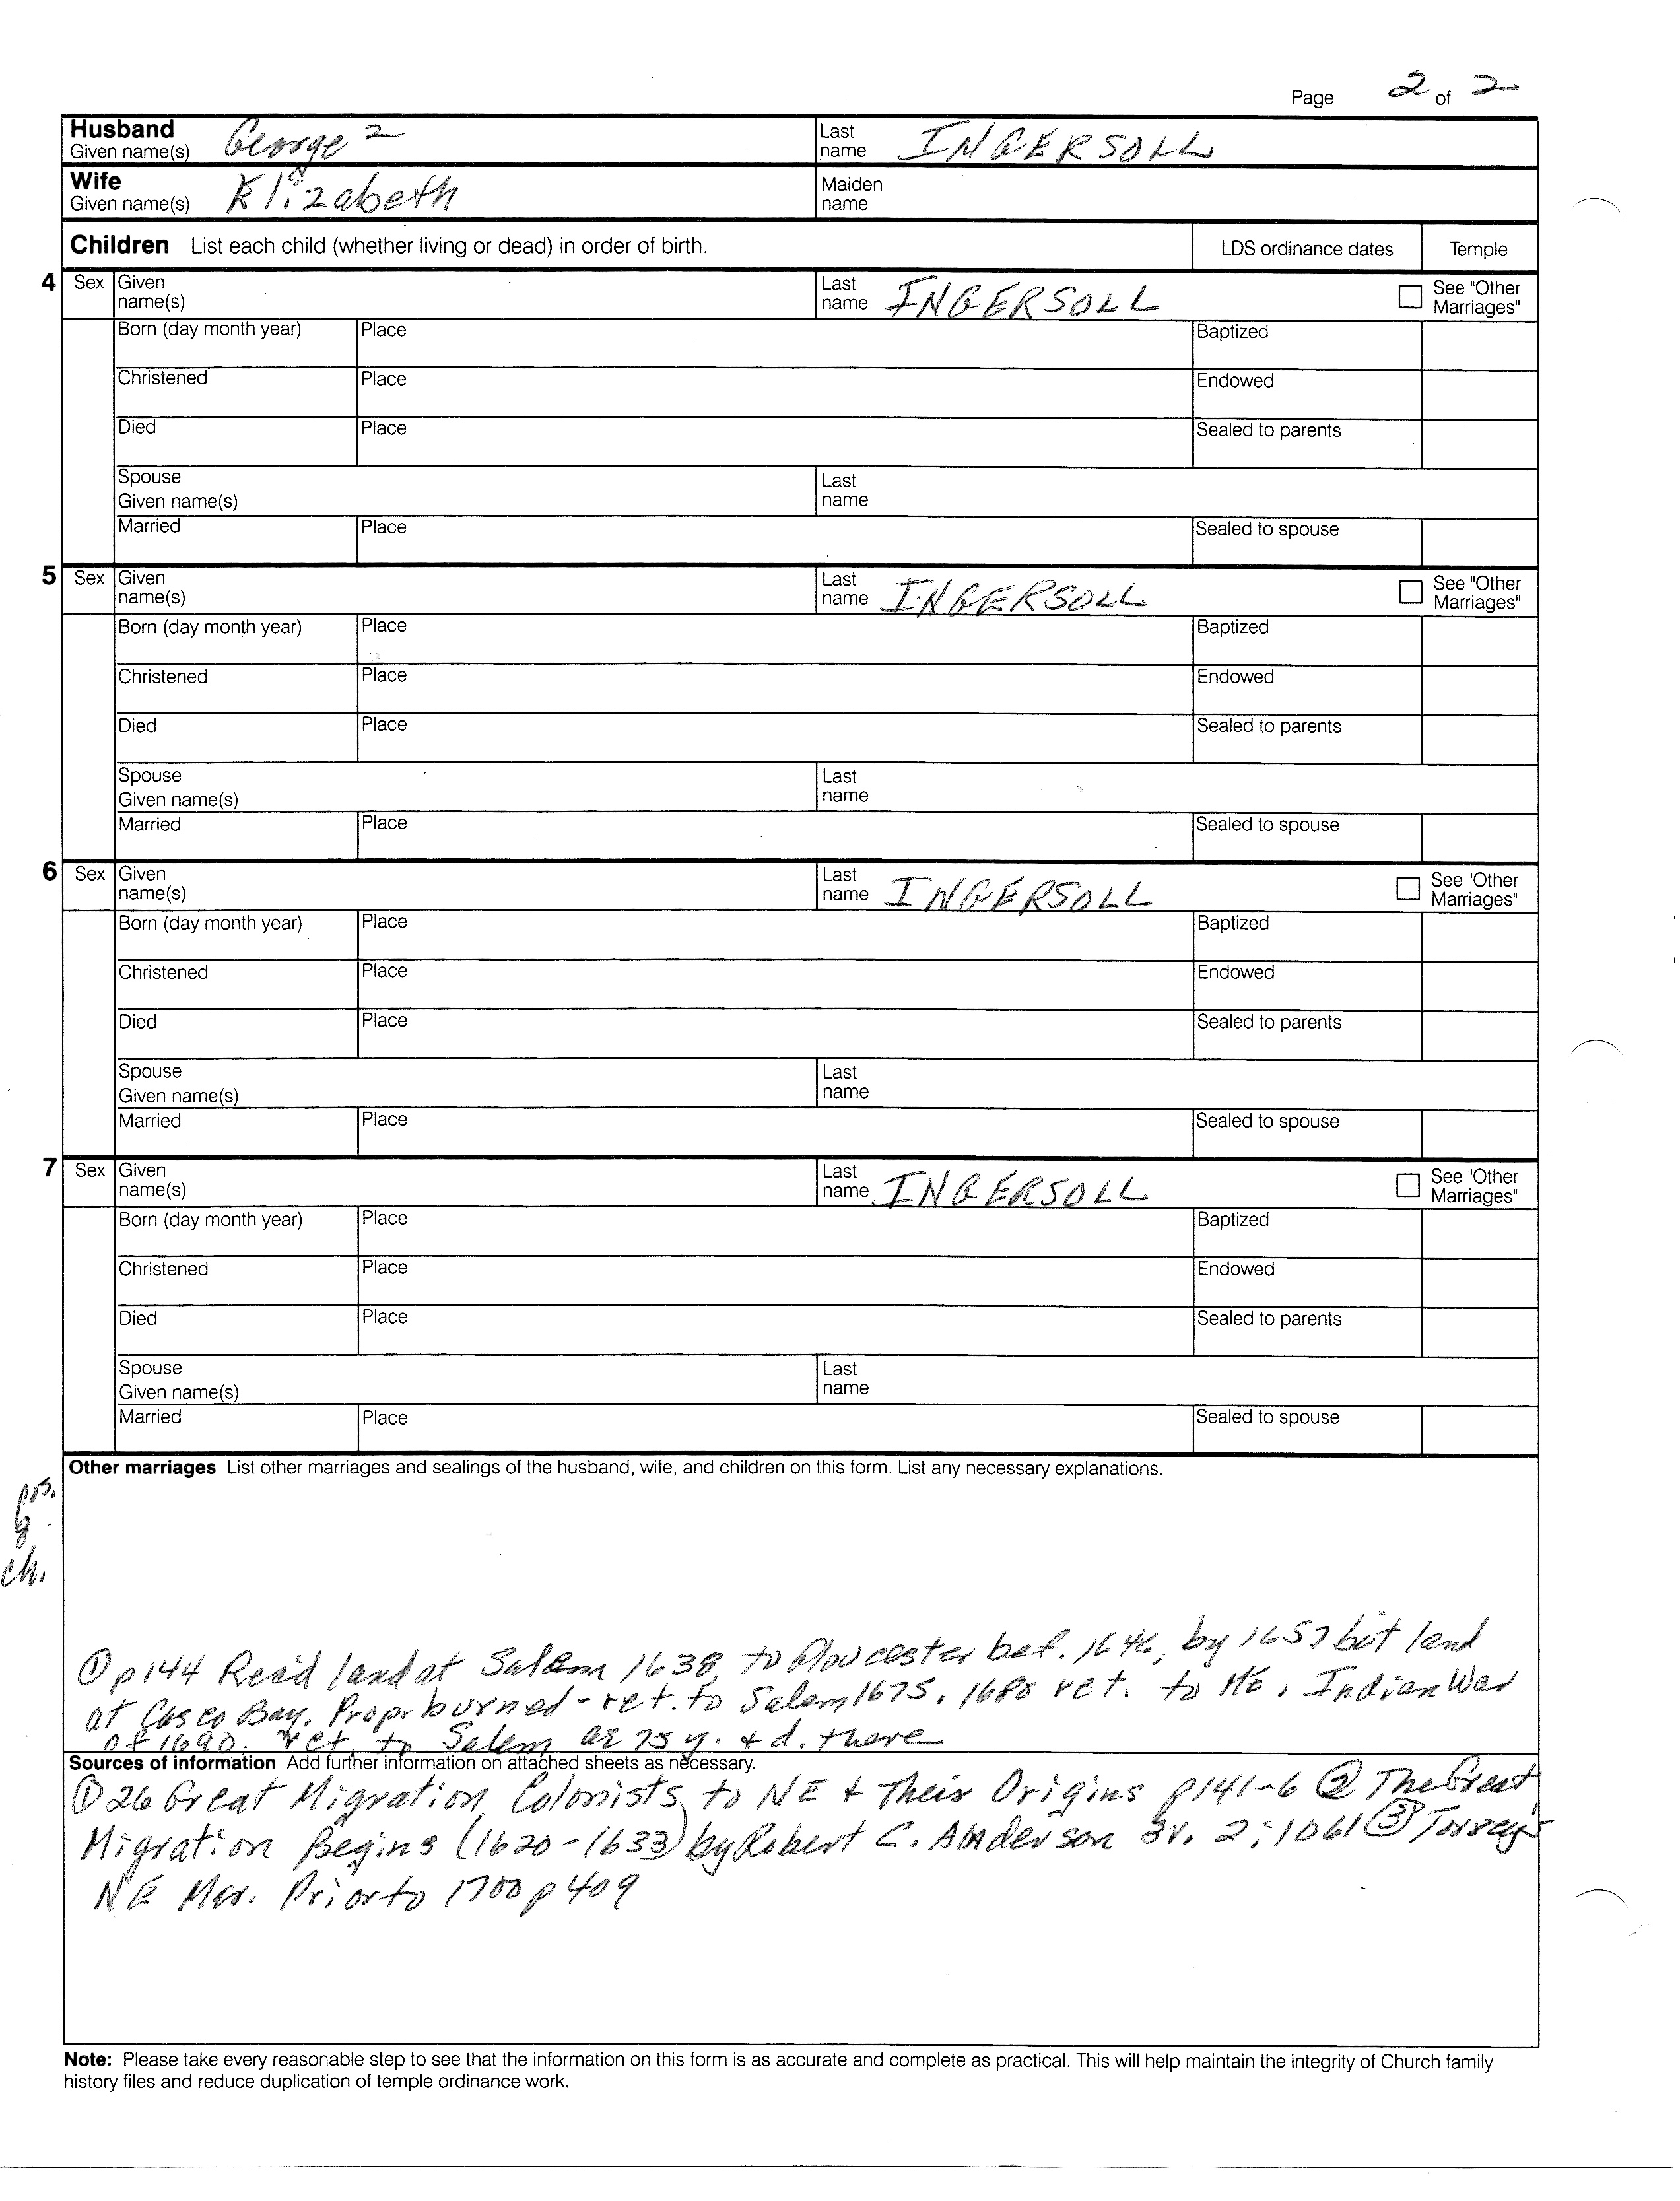 Page 2 of 2
Husband Given name(s) George 2 Last name INGERSOLL
Wife Given name(s) Elizabeth Maiden name
Children List each child (whether living or dead) in order of birth. LDS ordinance dates Temple
4 Sex Given name(s) Last name INGERSOLL See "Other Marriages"
Born (day month year) Place Baptized
Christened Place Endowed
Died Place Sealed to parents
Spouse Given name(s) Last name
Married Place Sealed to spouse
5 Sex Given name(s) Last name INGERSOLL See "Other Marriages"
Born (day month year) Place Baptized
Christened Place Endowed
Died Place Sealed to parents
Spouse Given name(s) Last name
Married Place Sealed to spouse
6 Sex Given name(s) Last name INGERSOLL See "Other Marriages"
Born (day month year) Place Baptized
Christened Place Endowed
Died Place Sealed to parents
Spouse Given name(s) Last name
Married Place Sealed to spouse
7 Sex Given name(s) Last name INGERSOLL See "Other Marriages"
Born (day month year) Place Baptized
Christened Place Endowed
Died Place Sealed to parents
Spouse Given name(s) Last name
Married Place Sealed to spouse
Other marriages List other marriages and sealings of the husband, wife, and children on this form. List any necessary explanations.
pos.
8
ch.
① p144 Rec'd land at Salem 1638, to Gloucester bef. 1646, by 1657 bot land
at Casco Bay. Prop. burned - ret. to Salem 1675. 1680 ret. to ME, Indian War
of 1690. ret. to Salem ae 75 y. + d. there
Sources of information Add further information on attached sheets as necessary.
① 26 Great Migration Colonists to NE + Their Origins p141-6 ② The Great
Migration Begins (1620-1633) by Robert C. Anderson 3v. 2:1061 ③ Torrey's
NE Mar. Prior to 1700 p409
Note: Please take every reasonable step to see that the information on this form is as accurate and complete as practical. This will help maintain the integrity of Church family
history files and reduce duplication of temple ordinance work.